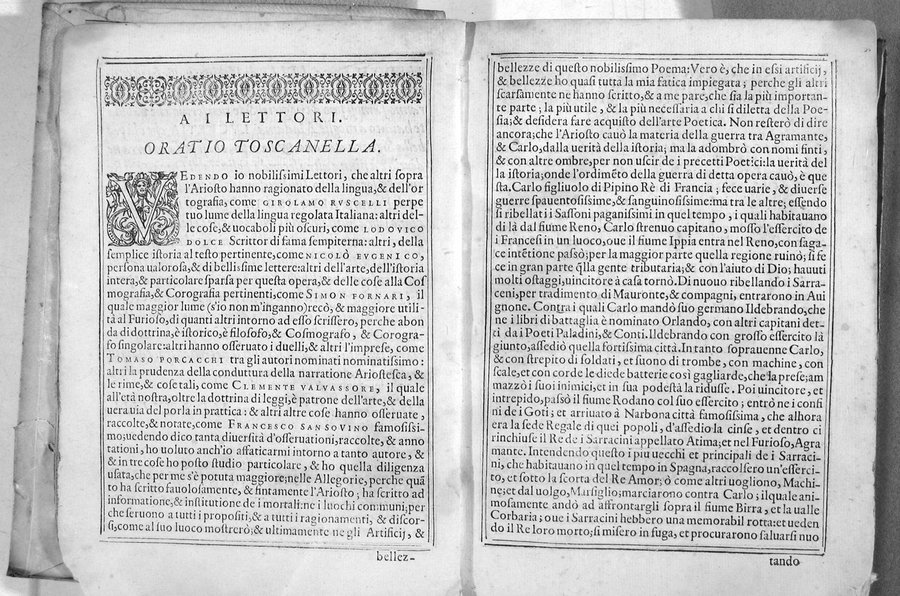 A I LETTORI.
ORATIO TOSCANELLA.
VEDENDO io nobilissimi Lettori, che altri sopra
l'Ariosto hanno ragionato della lingua,& dell'or
tografia, come GIROLAMO RVSCELLI perpe
tuo lume della lingua regolata Italiana: altri del-
le cose,& uocaboli più oscuri, come LODOVICO
DOLCE Scrittor di fama sempiterna: altri, della
semplice istoria al testo pertinente, come NICOLÒ EVGENICO,
persona ualorosa,& di bellissime lettere: altri dell'arte, dell'istoria
intera,& particolare sparsa per questa opera,& delle cose alla Cos
mografia,& Corografia pertinenti, come SIMON FORNARI, il
quale maggior lume (s'io non m'inganno) recò,& maggiore utili-
tà al Furioso, di quanti altri intorno ad esso scrissero, perche abon
da di dottrina, è istorico, è filosofo,& Cosmografo,& Corogra-
fo singolare: altri hanno osseruato i duelli,& altri l'imprese, come
TOMASO PORCACCHI tra gli autori nominati nominatissimo:
altri la prudenza della conduttura della narratione Ariostesca,&
le rime,& cose tali, come CLEMENTE VALVASSORE, il quale
all'età nostra, oltre la dottrina di leggi, è patrone dell'arte,& della
uera uia del porla in prattica:& altri altre cose hanno osseruate,
raccolte,& notate, come FRANCESCO SANSOVINO famosissi-
mo; uedendo dico tanta diuersità d'osseruationi, raccolte,& anno
tationi, ho uoluto anch'io affaticarmi intorno a tanto autore, &
& in tre cose ho posto studio particolare,& ho quella diligenza
usata, che per me s'è potuta maggiore; nelle Allegorie, perche quā
to ha scritto fauolosamente,& fintamente l'Ariosto; ha scritto ad
informatione,& institutione de i mortali: ne i luochi communi; per
che seruono a tutti i propositi,& a tutti i ragionamenti, & discor-
si, come al suo luoco mostrerò;& ultimamente ne gli Artificij, &
bellez-
bellezze di questo nobilissimo Poema: Vero è, che in essi artificij,
& bellezze ho quasi tutta la mia fatica impiegata; perche gli altri
scarsamente ne hanno scritto,& a me pare, che sia la più importan-
te parte; la più utile, & la più necessaria a chi si diletta della Poe-
sia;& desidera fare acquisto dell'arte Poetica. Non resterò di dire
ancora; che l'Ariosto cauò la materia della guerra tra Agramante,
& Carlo, dalla uerità della istoria; ma la adombrò con nomi finti,
& con altre ombre, per non uscir de i precetti Poetici: la uerità del
la istoria; onde l'ordimēto della guerra di detta opera cauò, è que
sta. Carlo figliuolo di Pipino Rè di Francia; fece uarie, & diuerse
guerre spauentosissime,& sanguinosissime: ma tra le altre; essendo
si ribellati i Sassoni paganissimi in quel tempo, i quali habitauano
di là dal fiume Reno, Carlo strenuo capitano, mosso l'essercito de
i Francesi in un luoco, oue il fiume Ippia entra nel Reno, con saga-
ce intētione passò; per la maggior parte quella regione ruinò; si fe
ce in gran parte q̄lla gente tributaria;& con l'aiuto di Dio; hauuti
molti ostaggi, uincitore a casa tornò. Di nuouo ribellando i Sarra-
ceni, per tradimento di Mauronte,& compagni, entrarono in Aui
gnone. Contra i quali Carlo mandò suo germano Ildebrando, che
ne i libri di battaglia è nominato Orlando, con altri capitani det-
ti da i Poeti Paladini,& Conti. Ildebrando con grosso essercito là
giunto, assediò quella fortissima città. In tanto soprauenne Carlo,
& con strepito di soldati, et suono di trombe, con machine, con
scale, et con corde le diede batterie così gagliarde, che la prese; am
mazzò i suoi inimici, et in sua podestà la ridusse. Poi uincitore, et
intrepido, passò il fiume Rodano col suo essercito; entrò ne i confi
ni de i Goti; et arriuato à Narbona città famosissima, che alhora
era la sede Regale di quei popoli, d'assedio la cinse, et dentro ci
rinchiuse il Re de i Sarracini appellato Atima; et nel Furioso, Agra
mante. Intendendo questo i più uecchi et principali de i Sarraci-
ni, che habitauano in quel tempo in Spagna, raccolsero un'esserci-
to, et sotto la scorta del Re Amor; ò come altri uogliono, Machi-
ne; et dal uolgo, Marsiglio; marciarono contra Carlo; il quale ani-
mosamente andò ad affrontargli sopra il fiume Birra, et la ualle
Corbaria; oue i Sarracini hebbero una memorabil rotta: et ueden
do il Re loro morto; si misero in fuga, et procurarono saluarsi nuo
tando